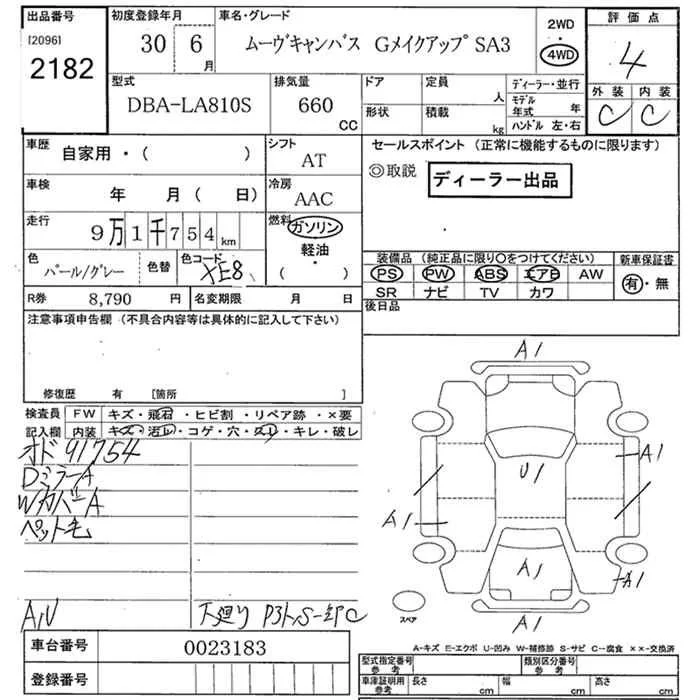 出品番号
[2096]
2182
初度登録年月
30 6
月
車名・グレード
ムーヴキャンバス Gメイクアップ SA3
2WD
・
4WD
評価点
4
外装 内装
C C
型式
DBA-LA810S
排気量
660
CC
ドア
形状
定員
人
積載
kg
ディーラー・並行
モデル年式 年
ハンドル 左・右
車歴
自家用・( )
シフト
AT
車検
年 月( 日)
冷房
AAC
走行
9万1千754km
燃料
ガソリン
・
軽油
( )
色
パール/グレー
色替
色コード
XE8
R券
8,790 円
名変期限 月 日
セールスポイント (正常に機能するものに限ります)
◎取説
ディーラー出品
装備品 (純正品に限り〇をつけてください)
PS PW ABS エアB AW
SR ナビ TV カワ
新車保証書
有・無
後日品
注意事項申告欄 (不具合内容等は具体的に記入して下さい)
修復歴 有 [箇所 ]
検査員
記入欄
FW キズ・飛石・ヒビ割・リペア跡・×要
内装 キズ・汚レ・コゲ・穴・スレ・キレ・破レ
オド 91754
DミラーA
WカバーA
ペット毛
A/V
下廻り P3ト、S-部C
A1
U1
A1
A1
A1
A1
A1
スペア
A-キズ E-エクボ U-凹み W-補修跡 S-サビ C-腐食 ××-交換済
車台番号
0023183
登録番号
型式指定番号
参考
類別区分番号
参考
車庫証明用
参考
長さ cm
幅 cm
高さ cm